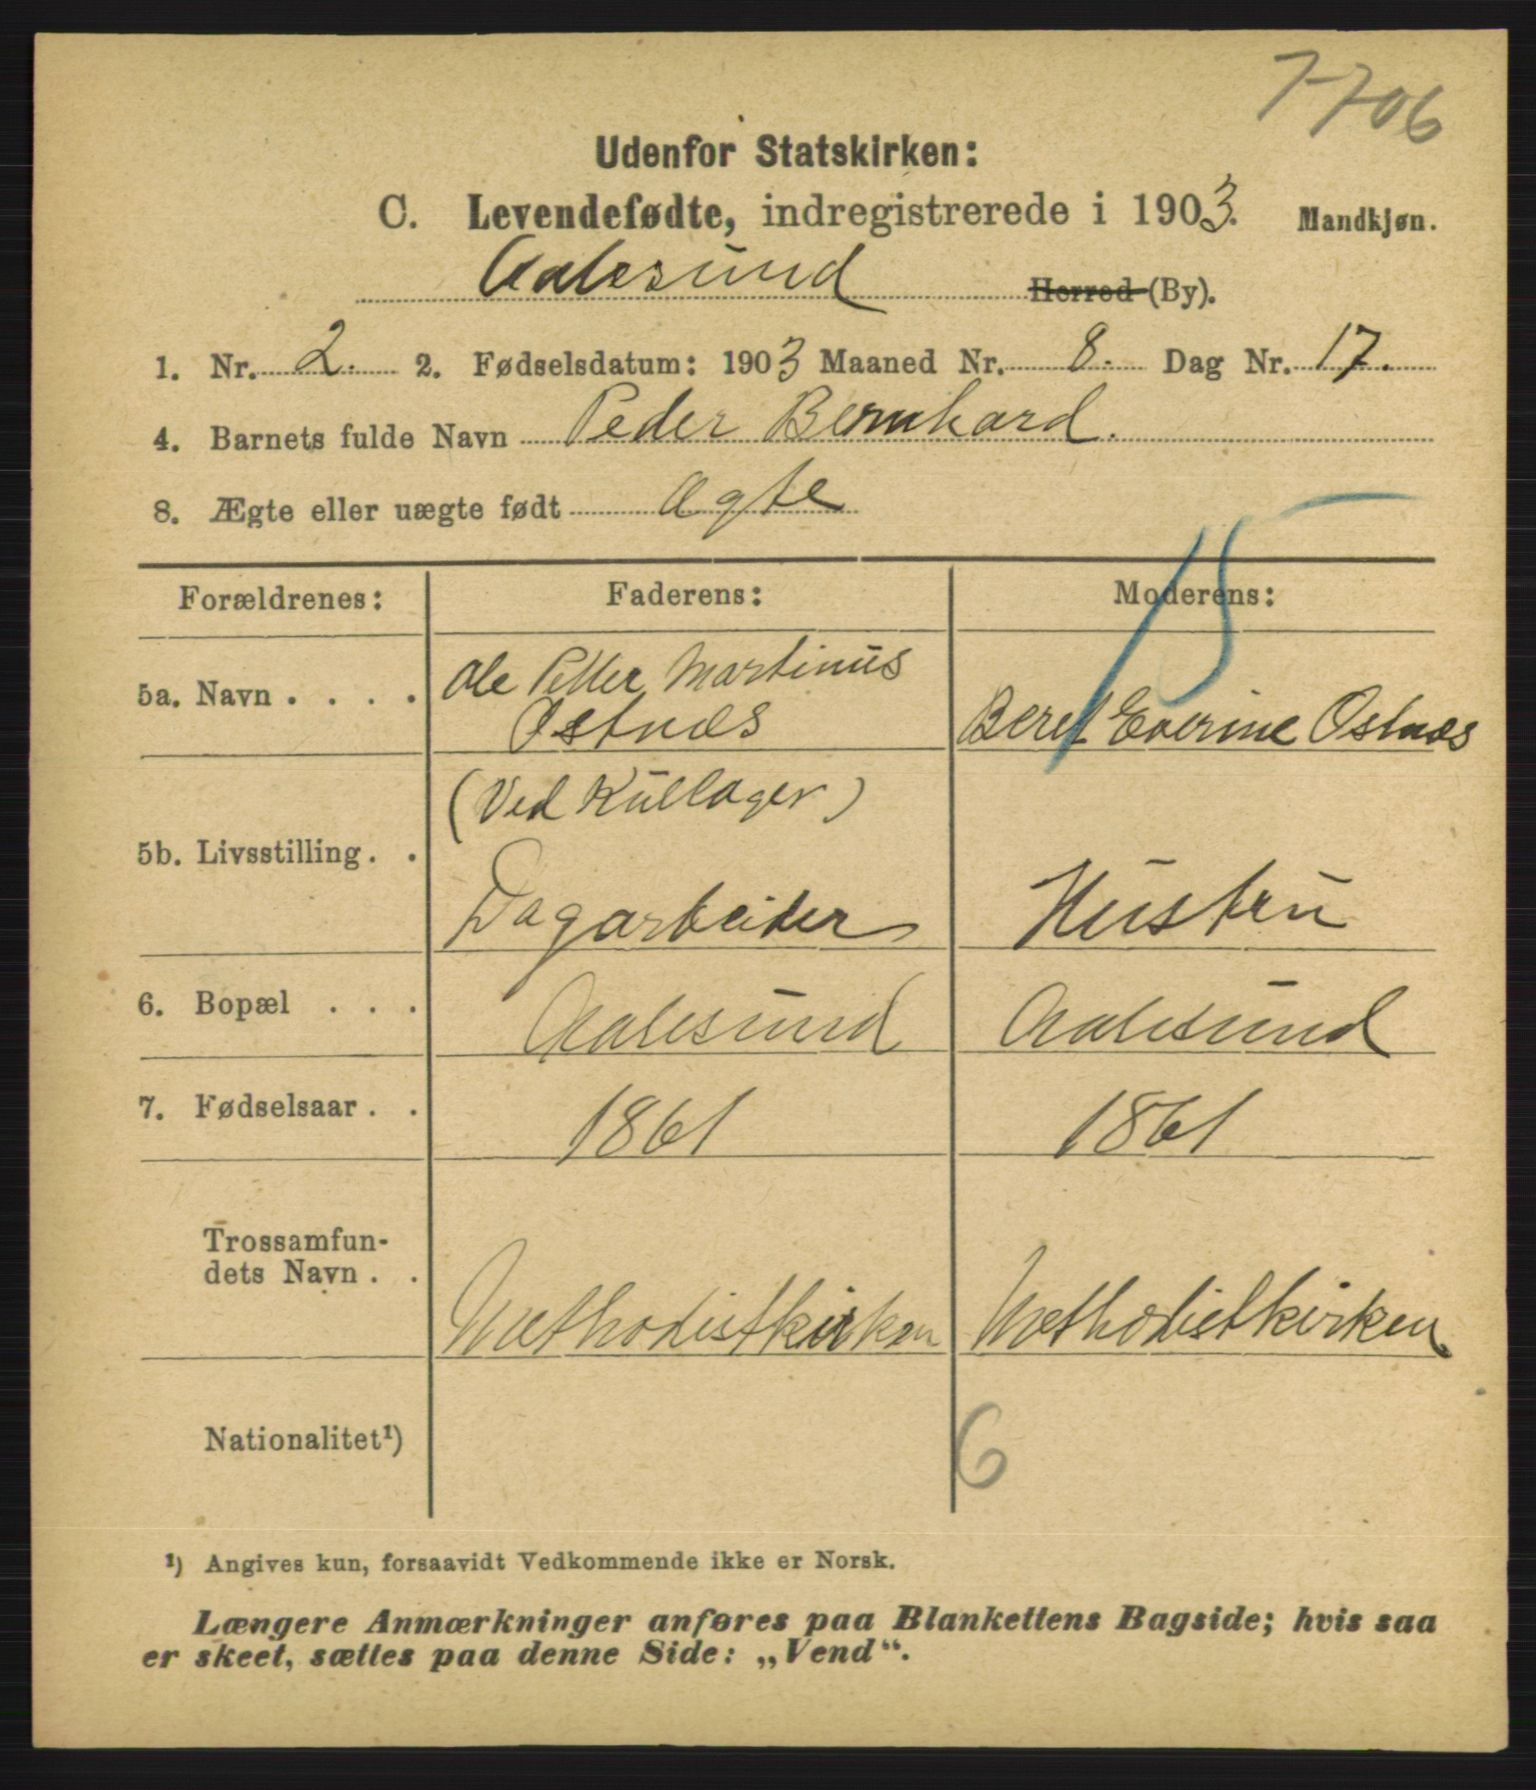 7-706
Udenfor Statskirken:
C. Levendefødte, indregistrerede i 1903. Mandkjøn.
Aalesund Herred (By).
1. Nr. 2. 2. Fødselsdatum: 1903 Maaned Nr. 8. Dag Nr. 17.
4. Barnets fulde Navn Peder Bernhard.
8. Ægte eller uægte født Ægte
15
Forældrenes: Faderens: Moderens:
5a. Navn . . . . Ole Petter Martinus Østnæs Beret Everine Østnæs
5b. Livsstilling . . (Ved Kullager) Dagarbeider Hustru
6. Bopæl . . . Aalesund Aalesund
7. Fødselsaar . . 1861 1861
Trossamfun-
dets Navn . . Methodistkirken Methodistkirken
Nationalitet¹)
6
¹) Angives kun, forsaavidt Vedkommende ikke er Norsk.
Længere Anmærkninger anføres paa Blankettens Bagside; hvis saa
er skeet, sættes paa denne Side: „Vend“.